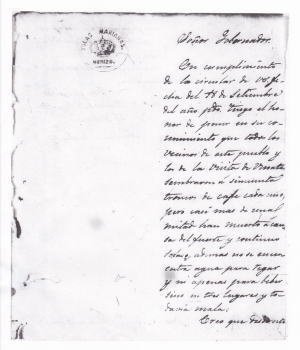 MERIZO.
Señor Gobernador.
En cumplimiento
de la circular de V.S. fe
cha del 18 de Setiembre
del año pdo. tengo el ho
nor de poner en su co
nocimiento que todos los
vecinos de este pueblo y
los de la Visita de
sembraron á cincuenta
troncos de café cada uno,
pero casi mas de cual
mitad han muerto á cau
sa del fuerte y continuo
sol, ademas no se encu
entra agua para regar
y ni apenas para beber
sino en tres lugares y to
davia mala;
Creo que